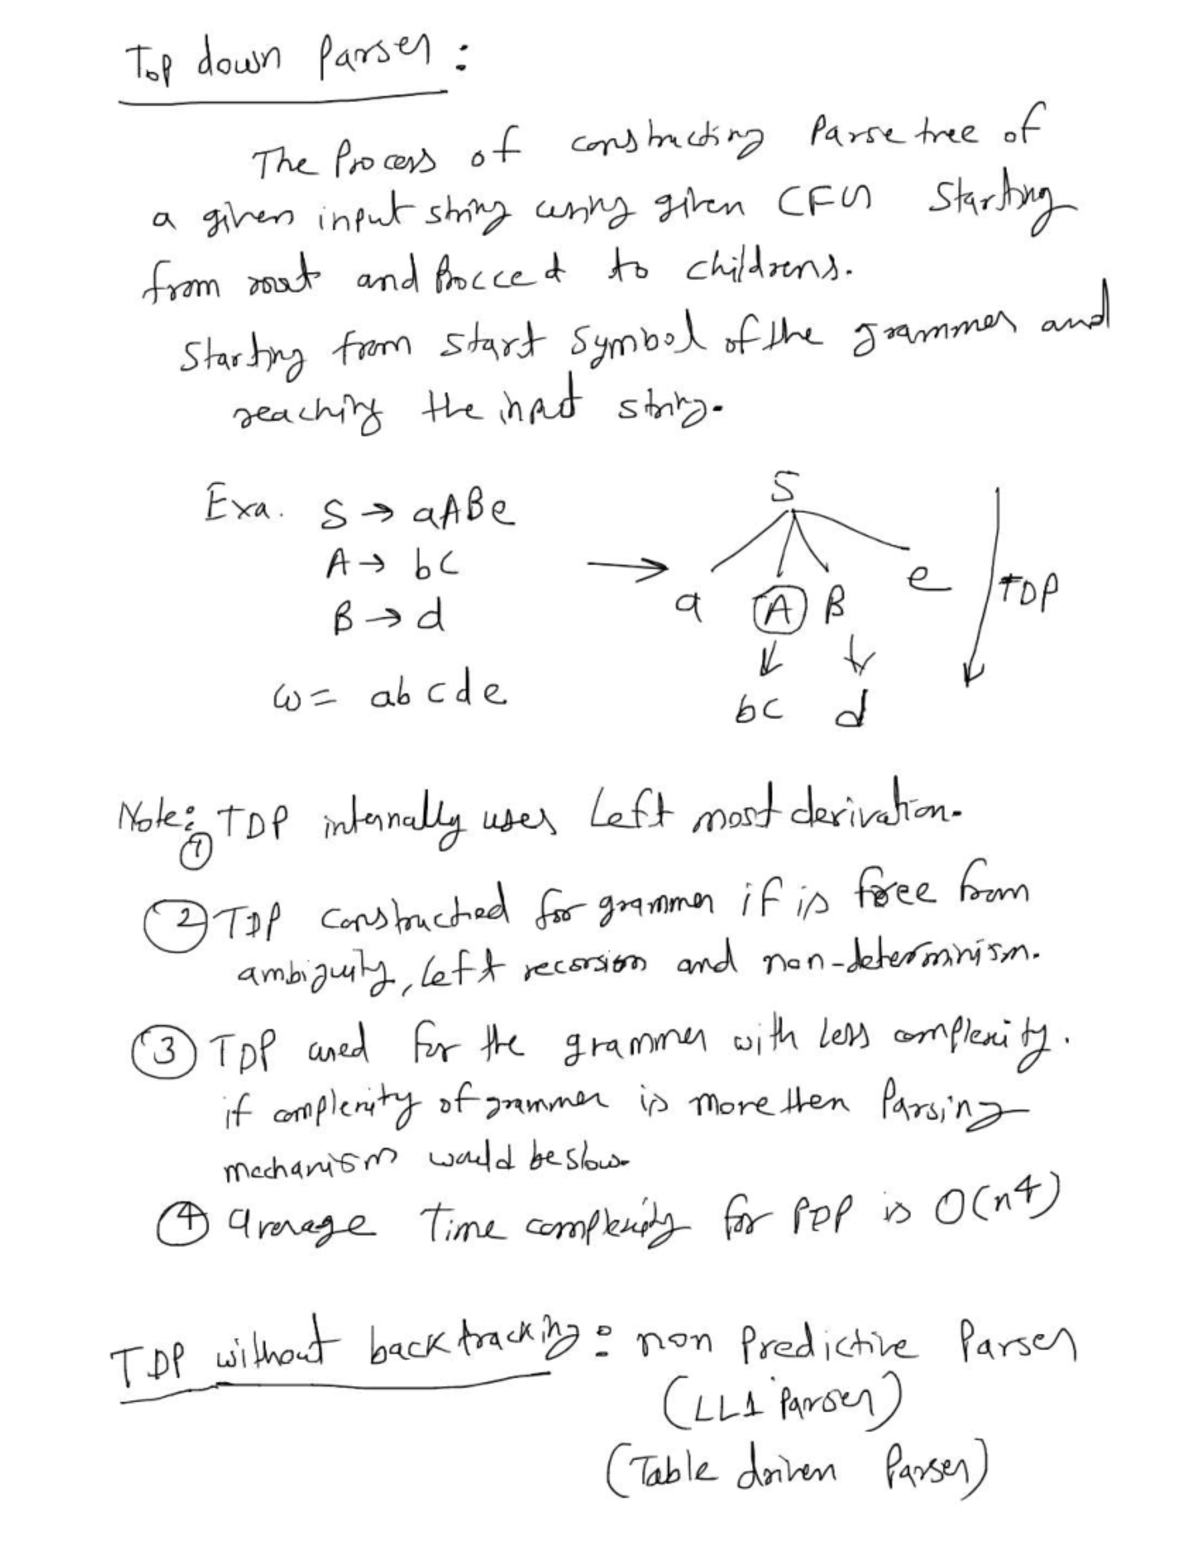 Top down Parser :
The Process of constructing Parse tree of
a given input string using given CFG Starting
from root and Procced to childrens.
Starting from start symbol of the grammer and
reaching the input string.
Exa. S → aABe
A → bC
B → d
ω = abcde
S
a A B e
bc d
TDP
Note: ① TDP internally uses Left most derivation.
② TDP constructed for grammer if is free from
ambiguity, Left recorsion and non-determinism.
③ TDP used for the grammer with Less complexity.
if complexity of grammer is more then Parsing
mechanism would be slow.
④ average Time complexity for PDP is O(n4)
TDP without backtracking: non Predictive Parser
(LL1 Parser)
(Table driven Parser)